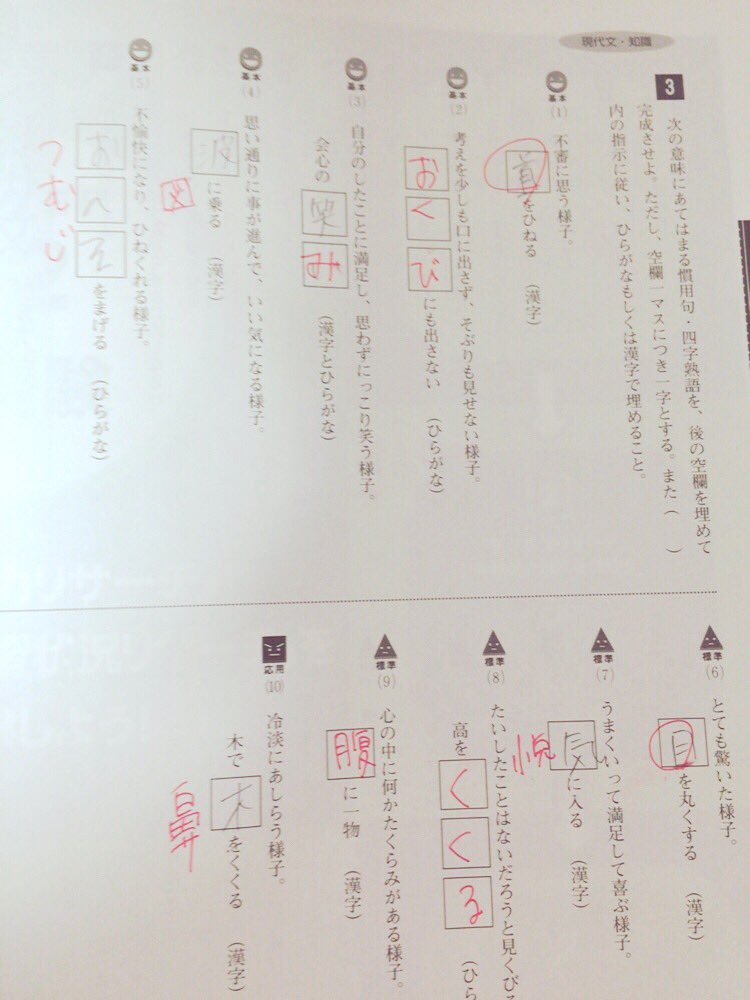 現代文・知識
3
次の意味にあてはまる慣用句・四字熟語を、後の空欄を埋めて
完成させよ。ただし、空欄一マスにつき一字とする。また（　）
内の指示に従い、ひらがなもしくは漢字で埋めること。
基本
(1) 不審に思う様子。
首をひねる （漢字）
基本
(2) 考えを少しも口に出さず、そぶりも見せない様子。
おくびにも出さない （ひらがな）
基本
(3) 自分のしたことに満足し、思わずにっこり笑う様子。
会心の笑み （漢字とひらがな）
基本
(4) 思い通りに事が進んで、いい気になる様子。
波に乗る （漢字）
図
基本
(5) 不愉快になり、ひねくれる様子。
おへそをまげる （ひらがな）
つむじ
標準
(6) とても驚いた様子。
目を丸くする （漢字）
標準
(7) うまくいって満足して喜ぶ様子。
気に入る （漢字）
悦
標準
(8) たいしたことはないだろうと見くびる
高をくくる （ひら
標準
(9) 心の中に何かたくらみがある様子。
腹に一物 （漢字）
応用
(10) 冷淡にあしらう様子。
木で木をくくる （漢字）
鼻